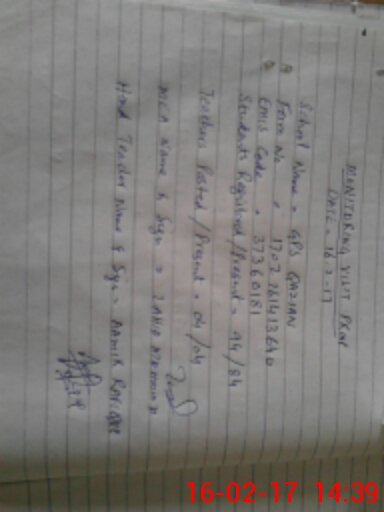 MONITORING VISIT PROF
DATE = 16-2-17
School Name = GPS QAZIAN
Form No = 1702161413640
EMIS Code = 37360181
Students Registered/Present = 94/84
Teachers Posted/Present = 04/04
MEA Name & Sign =
Head Teacher Name & Sign =
16-02-17 14:39